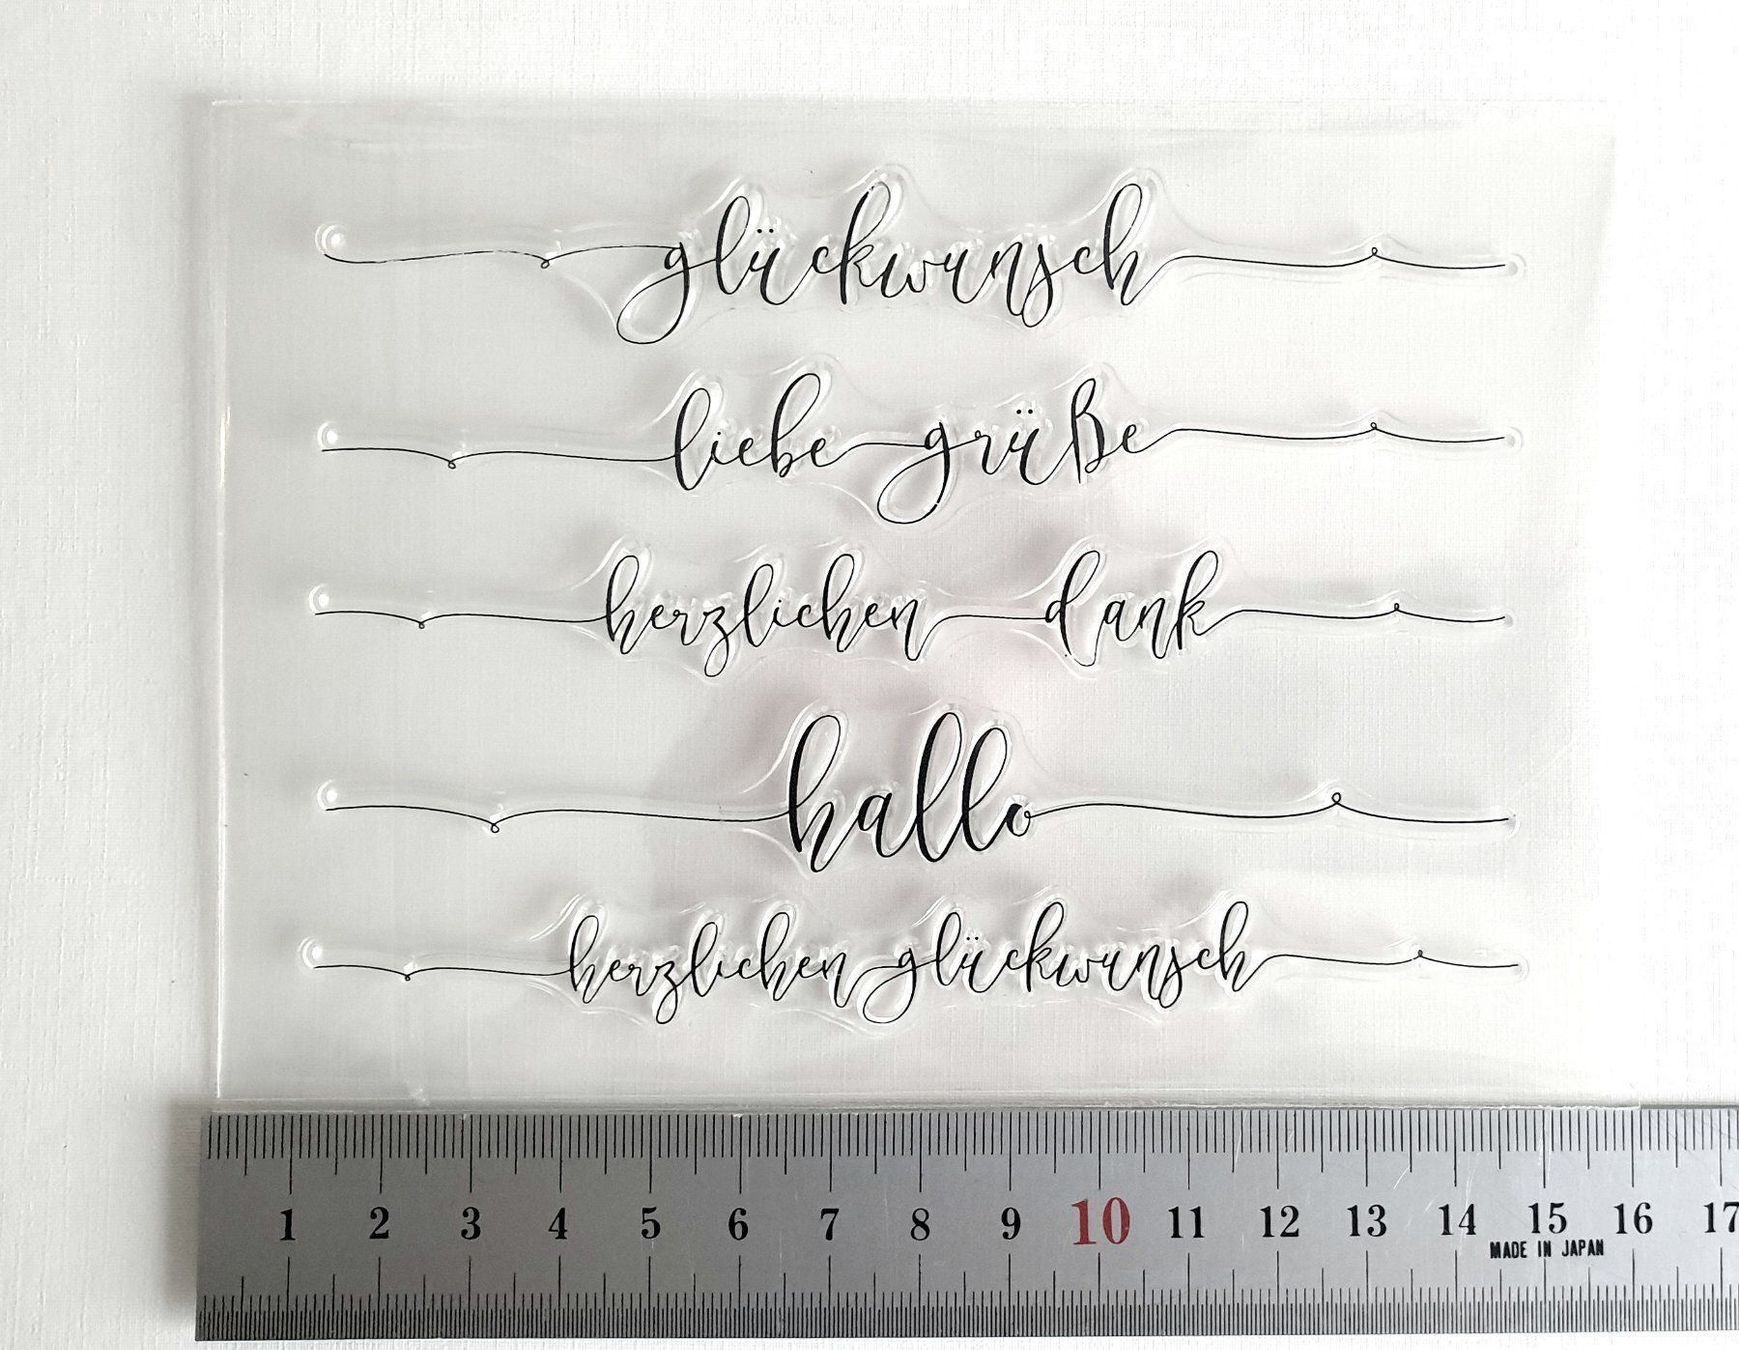 glückwunsch
liebe grüße
herzlichen dank
hallo
herzlichen glückwunsch
1 2 3 4 5 6 7 8 9 10 11 12 13 14 15 16 17
MADE IN JAPAN